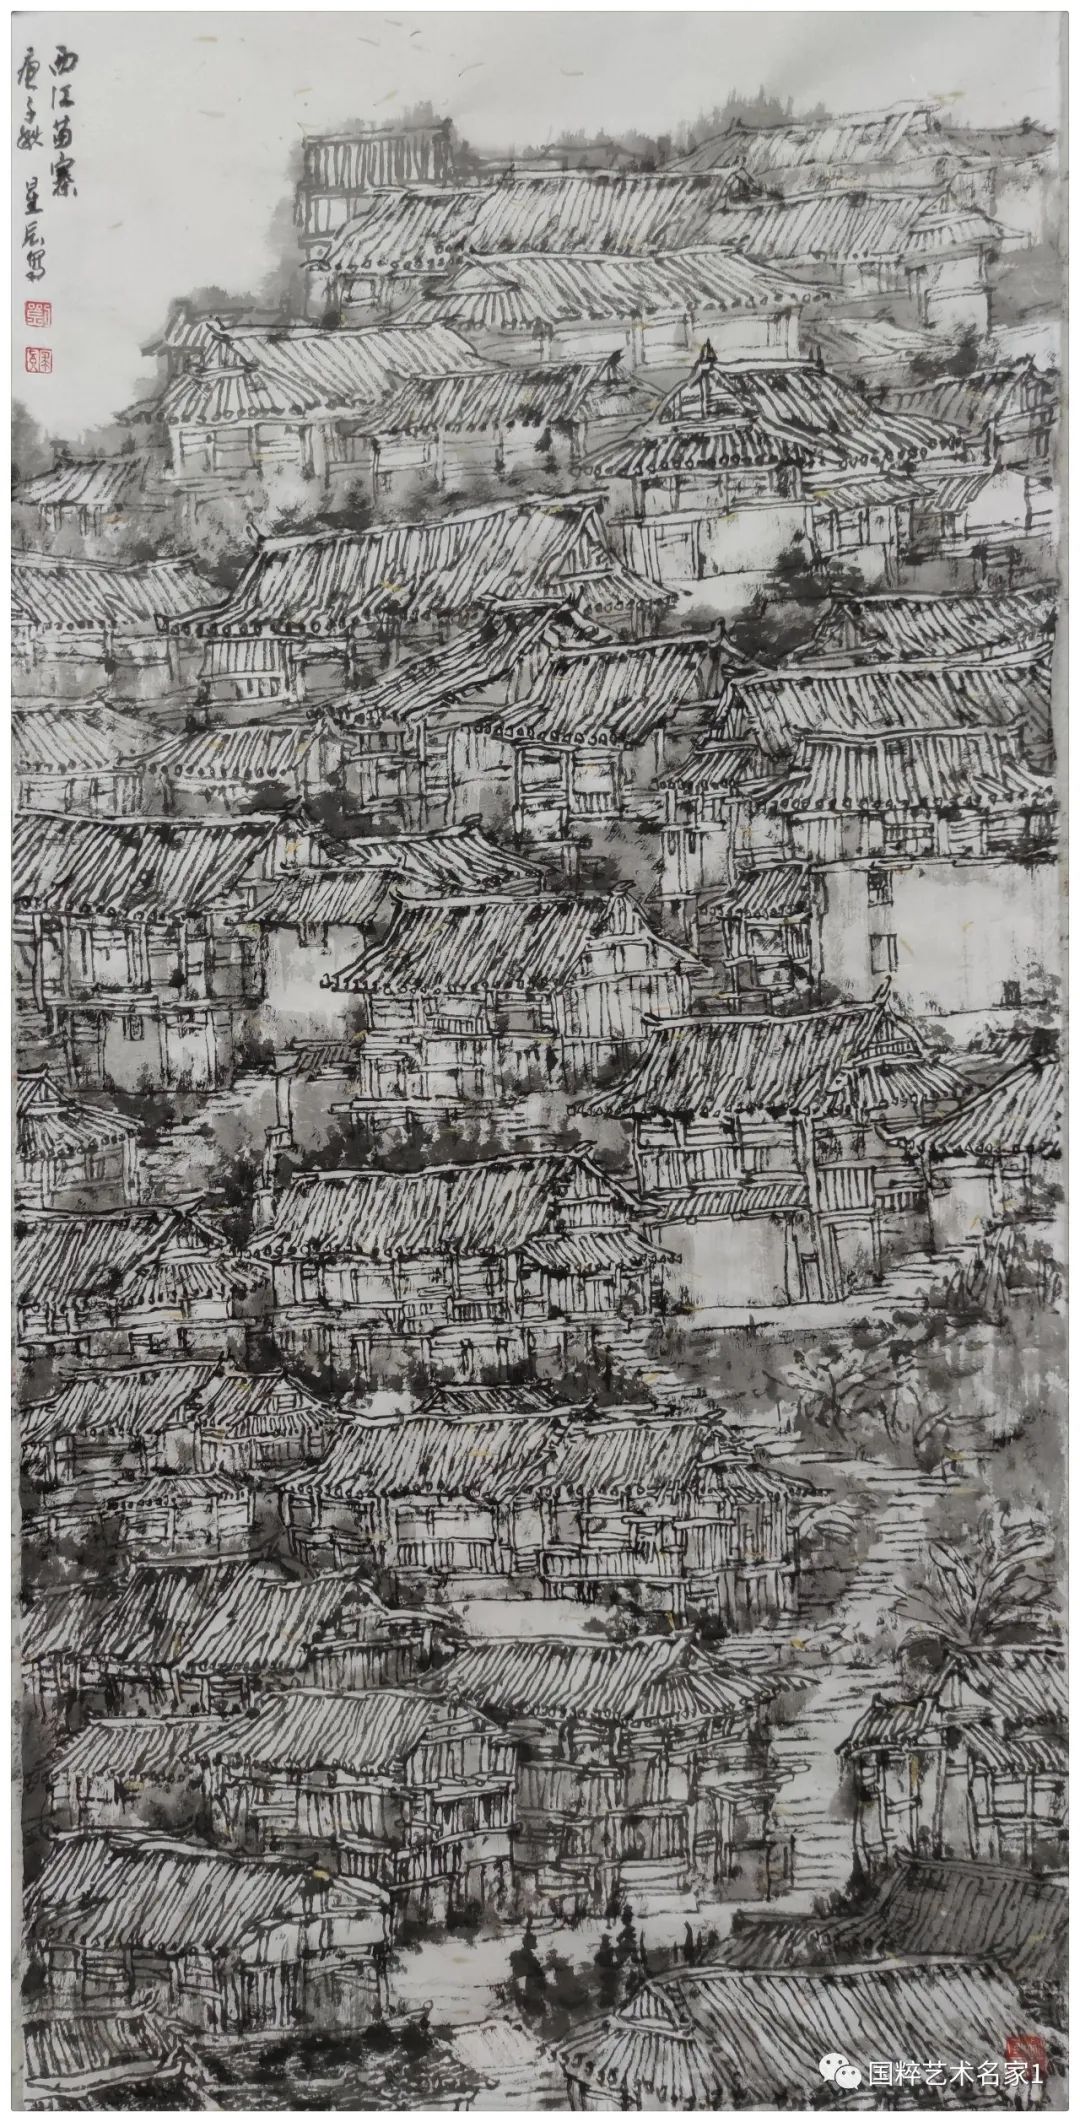 西江苗寨
庚子秋 星辰写
国粹艺术名家1